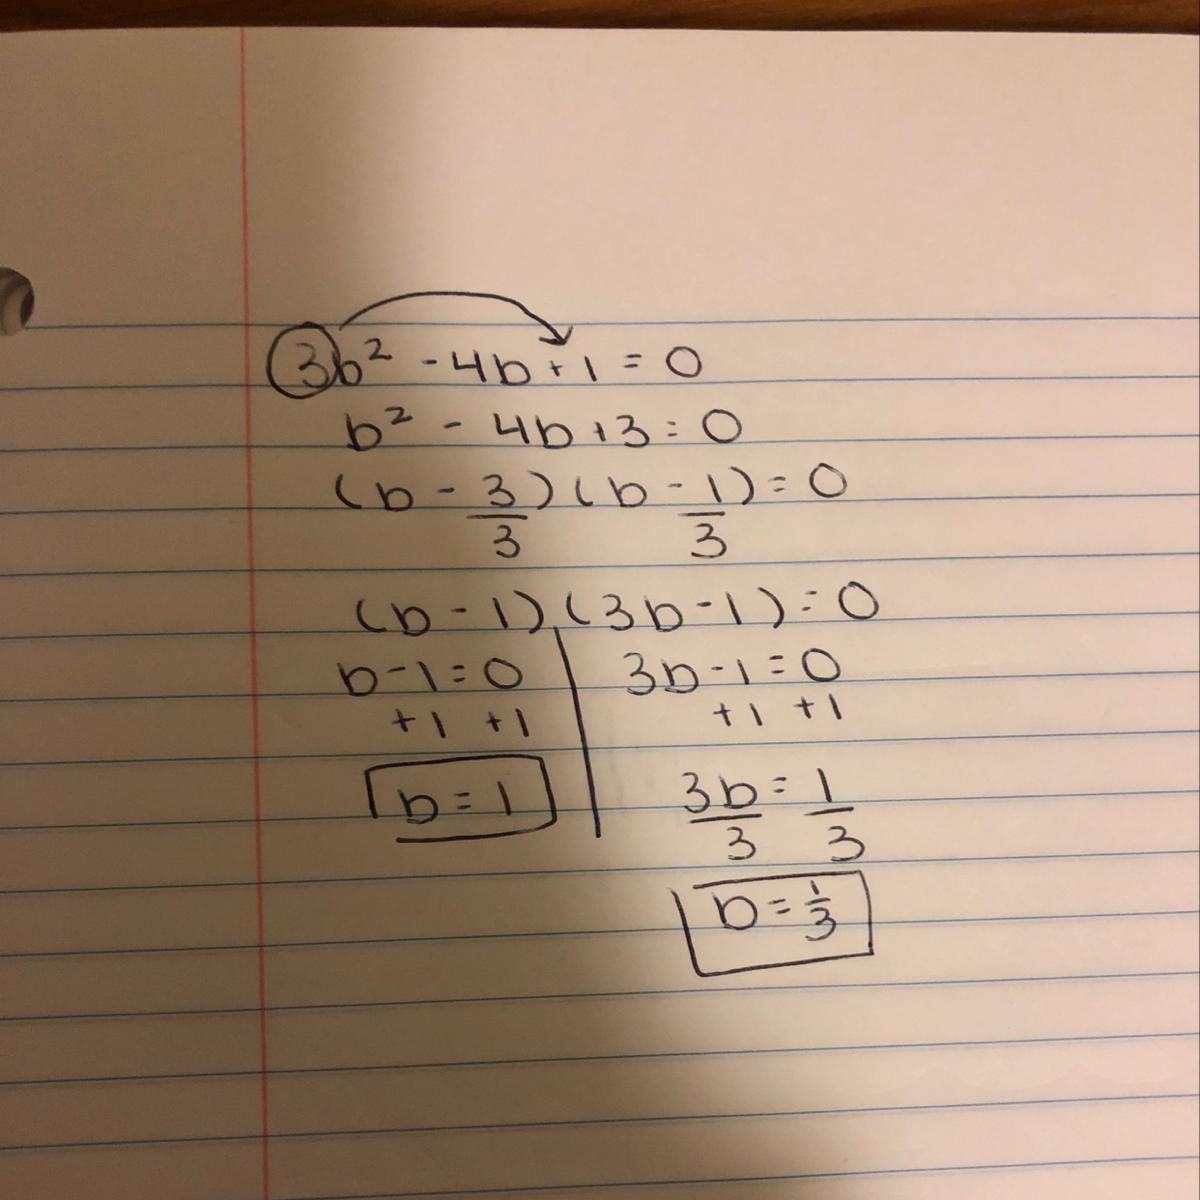 3b² - 4b + 1 = 0
b² - 4b + 3 = 0
(b - 3/3)(b - 1/3) = 0
(b - 1)(3b - 1) = 0
b - 1 = 0 3b - 1 = 0
+1 +1 +1 +1
b = 1 3b/3 = 1/3
b = 1/3